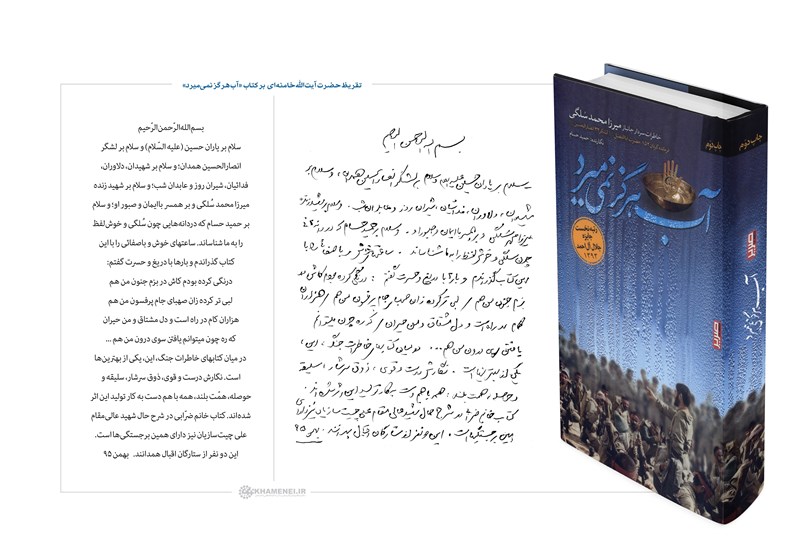 تقریظ حضرت آیت‌الله خامنه‌ای بر کتاب «آب هرگز نمی‌میرد»
بسم‌الله‌الرّحمن‌الرّحیم
سلام بر یاران حسین (علیه السّلام) و سلام بر لشگر
انصارالحسین همدان؛ و سلام بر شهیدان، دلاوران،
فدائیان، شیران روز و عابدان شب؛ و سلام بر شهید زنده
میرزا محمد سُلگی و بر همسر باایمان و صبور او؛ و سلام
بر حمید حسام که دردانه‌هایی چون سُلگی و خوش‌لفظ
را به ما شناساند. ساعتهای خوش و باصفائی را با این
کتاب گذراندم و بارها با دریغ و حسرت گفتم:
درنگی کرده بودم کاش در بزم جنون من هم
لبی تر کرده زان صهبای جام پرفسون من هم
هزاران کام در راه است و دل مشتاق و من حیران
که ره چون میتوانم یافتن سوی درون من هم ...
در میان کتابهای خاطرات جنگ، این، یکی از بهترین‌ها
است. نگارش درست و قوی، ذوق سرشار، سلیقه و
حوصله، همّت بلند، همه با هم دست به کار تولید این اثر
شده‌اند. کتاب خانم ضرّابی در شرح حال شهید عالی‌مقام
علی چیت‌سازیان نیز دارای همین برجستگی‌ها است.
این دو نفر از ستارگان اقبال همدانند. بهمن ۹۵
بسم الله الرحمن الرحیم
سلام بر یاران حسین علیه السلام و سلام بر لشگر انصارالحسین همدان، و سلام بر
شهیدان، دلاوران، فدائیان، شیران روز و عابدان شب. و سلام بر شهید زنده
میرزا محمد سلگی و بر همسر باایمان و صبور او. و سلام بر حمید حسام که دردانه‌هائی
چون سلگی و خوش‌لفظ را به ما شناساند. ساعتهای خوش و باصفائی را با
این کتاب گذراندم و بارها با دریغ و حسرت گفتم: درنگی کرده بودم کاش در
بزم جنون من هم / لبی تر کرده زان صهبای جام پرفسون من هم / هزاران
کام در راه است و دل مشتاق و من حیران / که ره چون میتوانم
یافتن سوی درون من هم... در میان کتابهای خاطرات جنگ، این،
یکی از بهترینها است. نگارش درست و قوی، ذوق سرشار، سلیقه
و حوصله، همت بلند، همه با هم دست به کار تولید این اثر شده‌اند.
کتاب خانم ضرابی در شرح حال شهید عالی‌مقام علی چیت‌سازیان نیز دارای
همین برجستگیها است. این دو نفر از ستارگان اقبال همدانند. بهمن ۹۵
خاطرات سردار جانباز میرزا محمد سلگی
نگارنده: حمید حسام
چاپ دوم
آب هرگز نمی‌میرد
رتبه نخست
جایزه
جلال آل‌احمد
۱۳۹۳
صریر
چاپ دوم
صریر
آب هرگز نمی‌میرد
صریر
KHAMENEI.IR